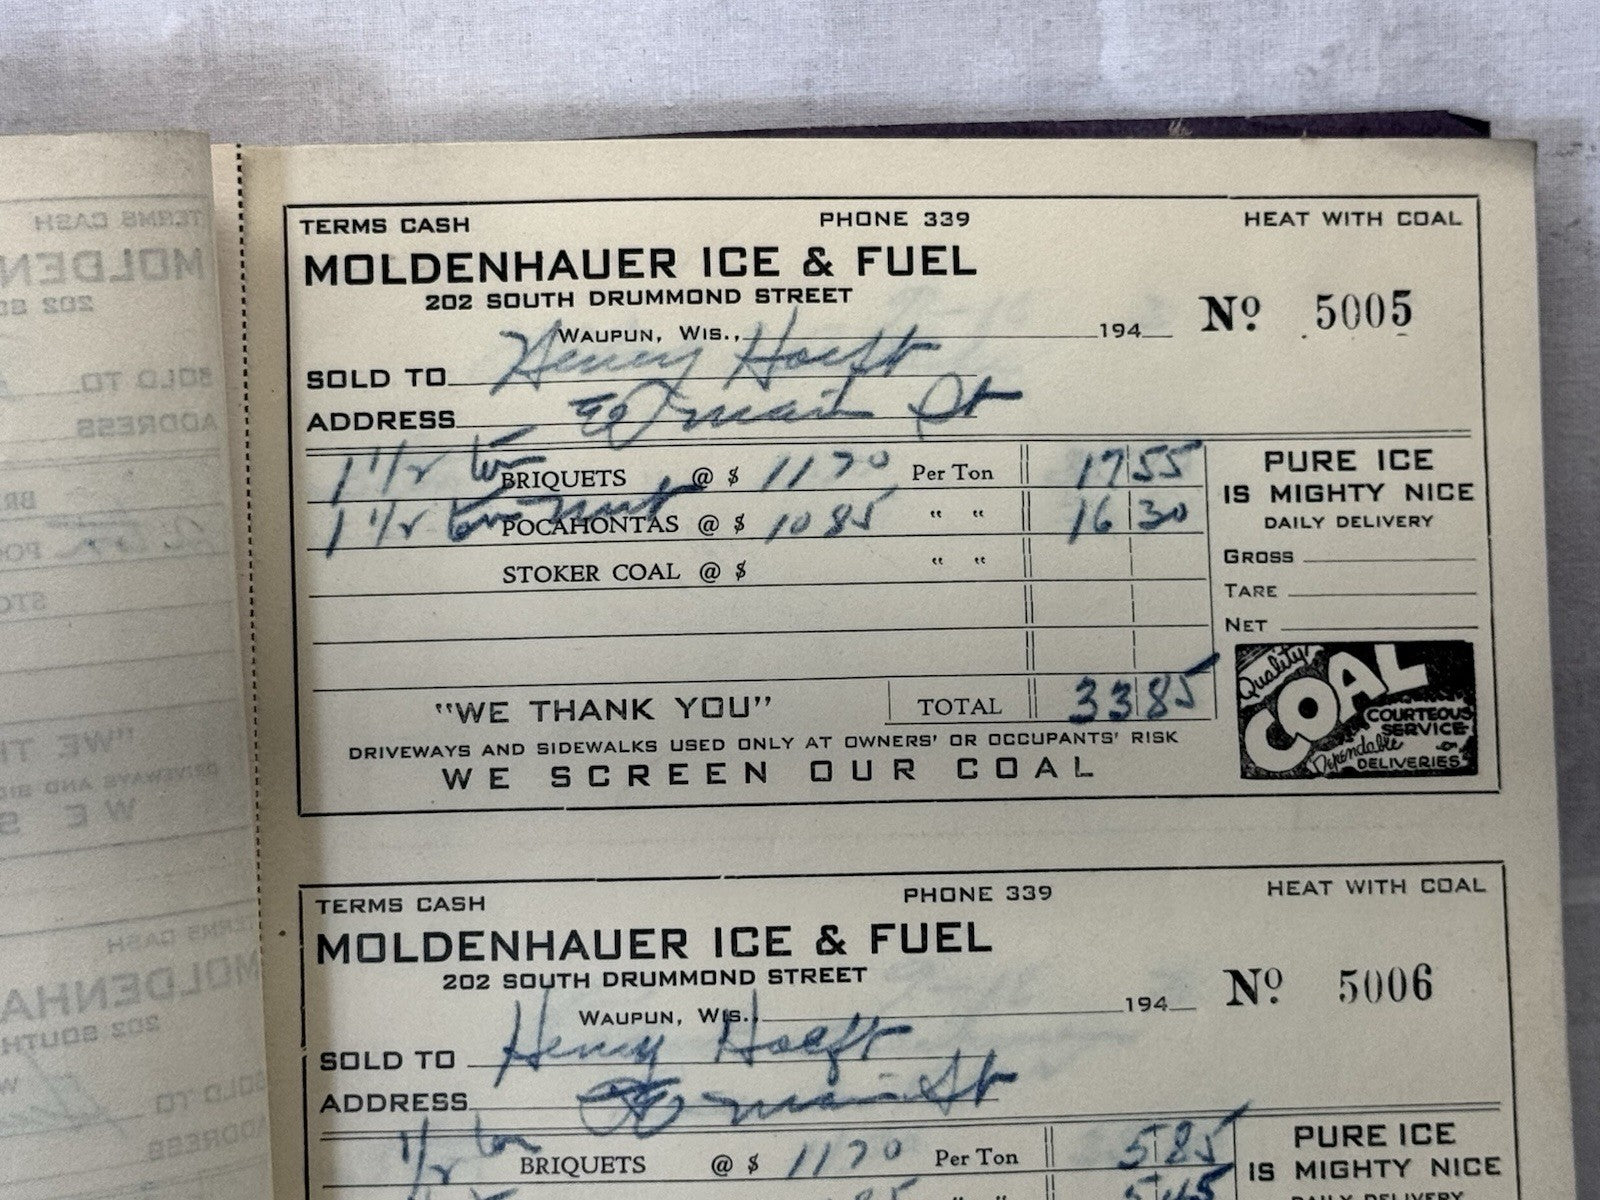 TERMS CASH PHONE 339 HEAT WITH COAL
MOLDENHAUER ICE & FUEL
202 SOUTH DRUMMOND STREET
Nº 5005
WAUPUN, WIS., 194
SOLD TO Henry Hoeft
ADDRESS E Main St
1 1/2 ton BRIQUETS @ $ 1170 Per Ton 17 55
1 1/2 ton nut POCAHONTAS @ $ 1085 " " 16 30
STOKER COAL @ $ " "
"WE THANK YOU" TOTAL 33 85
DRIVEWAYS AND SIDEWALKS USED ONLY AT OWNERS' OR OCCUPANTS' RISK
WE SCREEN OUR COAL
PURE ICE
IS MIGHTY NICE
DAILY DELIVERY
GROSS
TARE
NET
Quality
COAL
COURTEOUS
SERVICE
Dependable
DELIVERIES
TERMS CASH PHONE 339 HEAT WITH COAL
MOLDENHAUER ICE & FUEL
202 SOUTH DRUMMOND STREET
Nº 5006
WAUPUN, WIS., 194
SOLD TO Henry Hoeft
ADDRESS E Main St
1/2 ton BRIQUETS @ $ 1170 Per Ton 5 85
85 " " 5 45
PURE ICE
IS MIGHTY NICE
DAILY DELIVERY